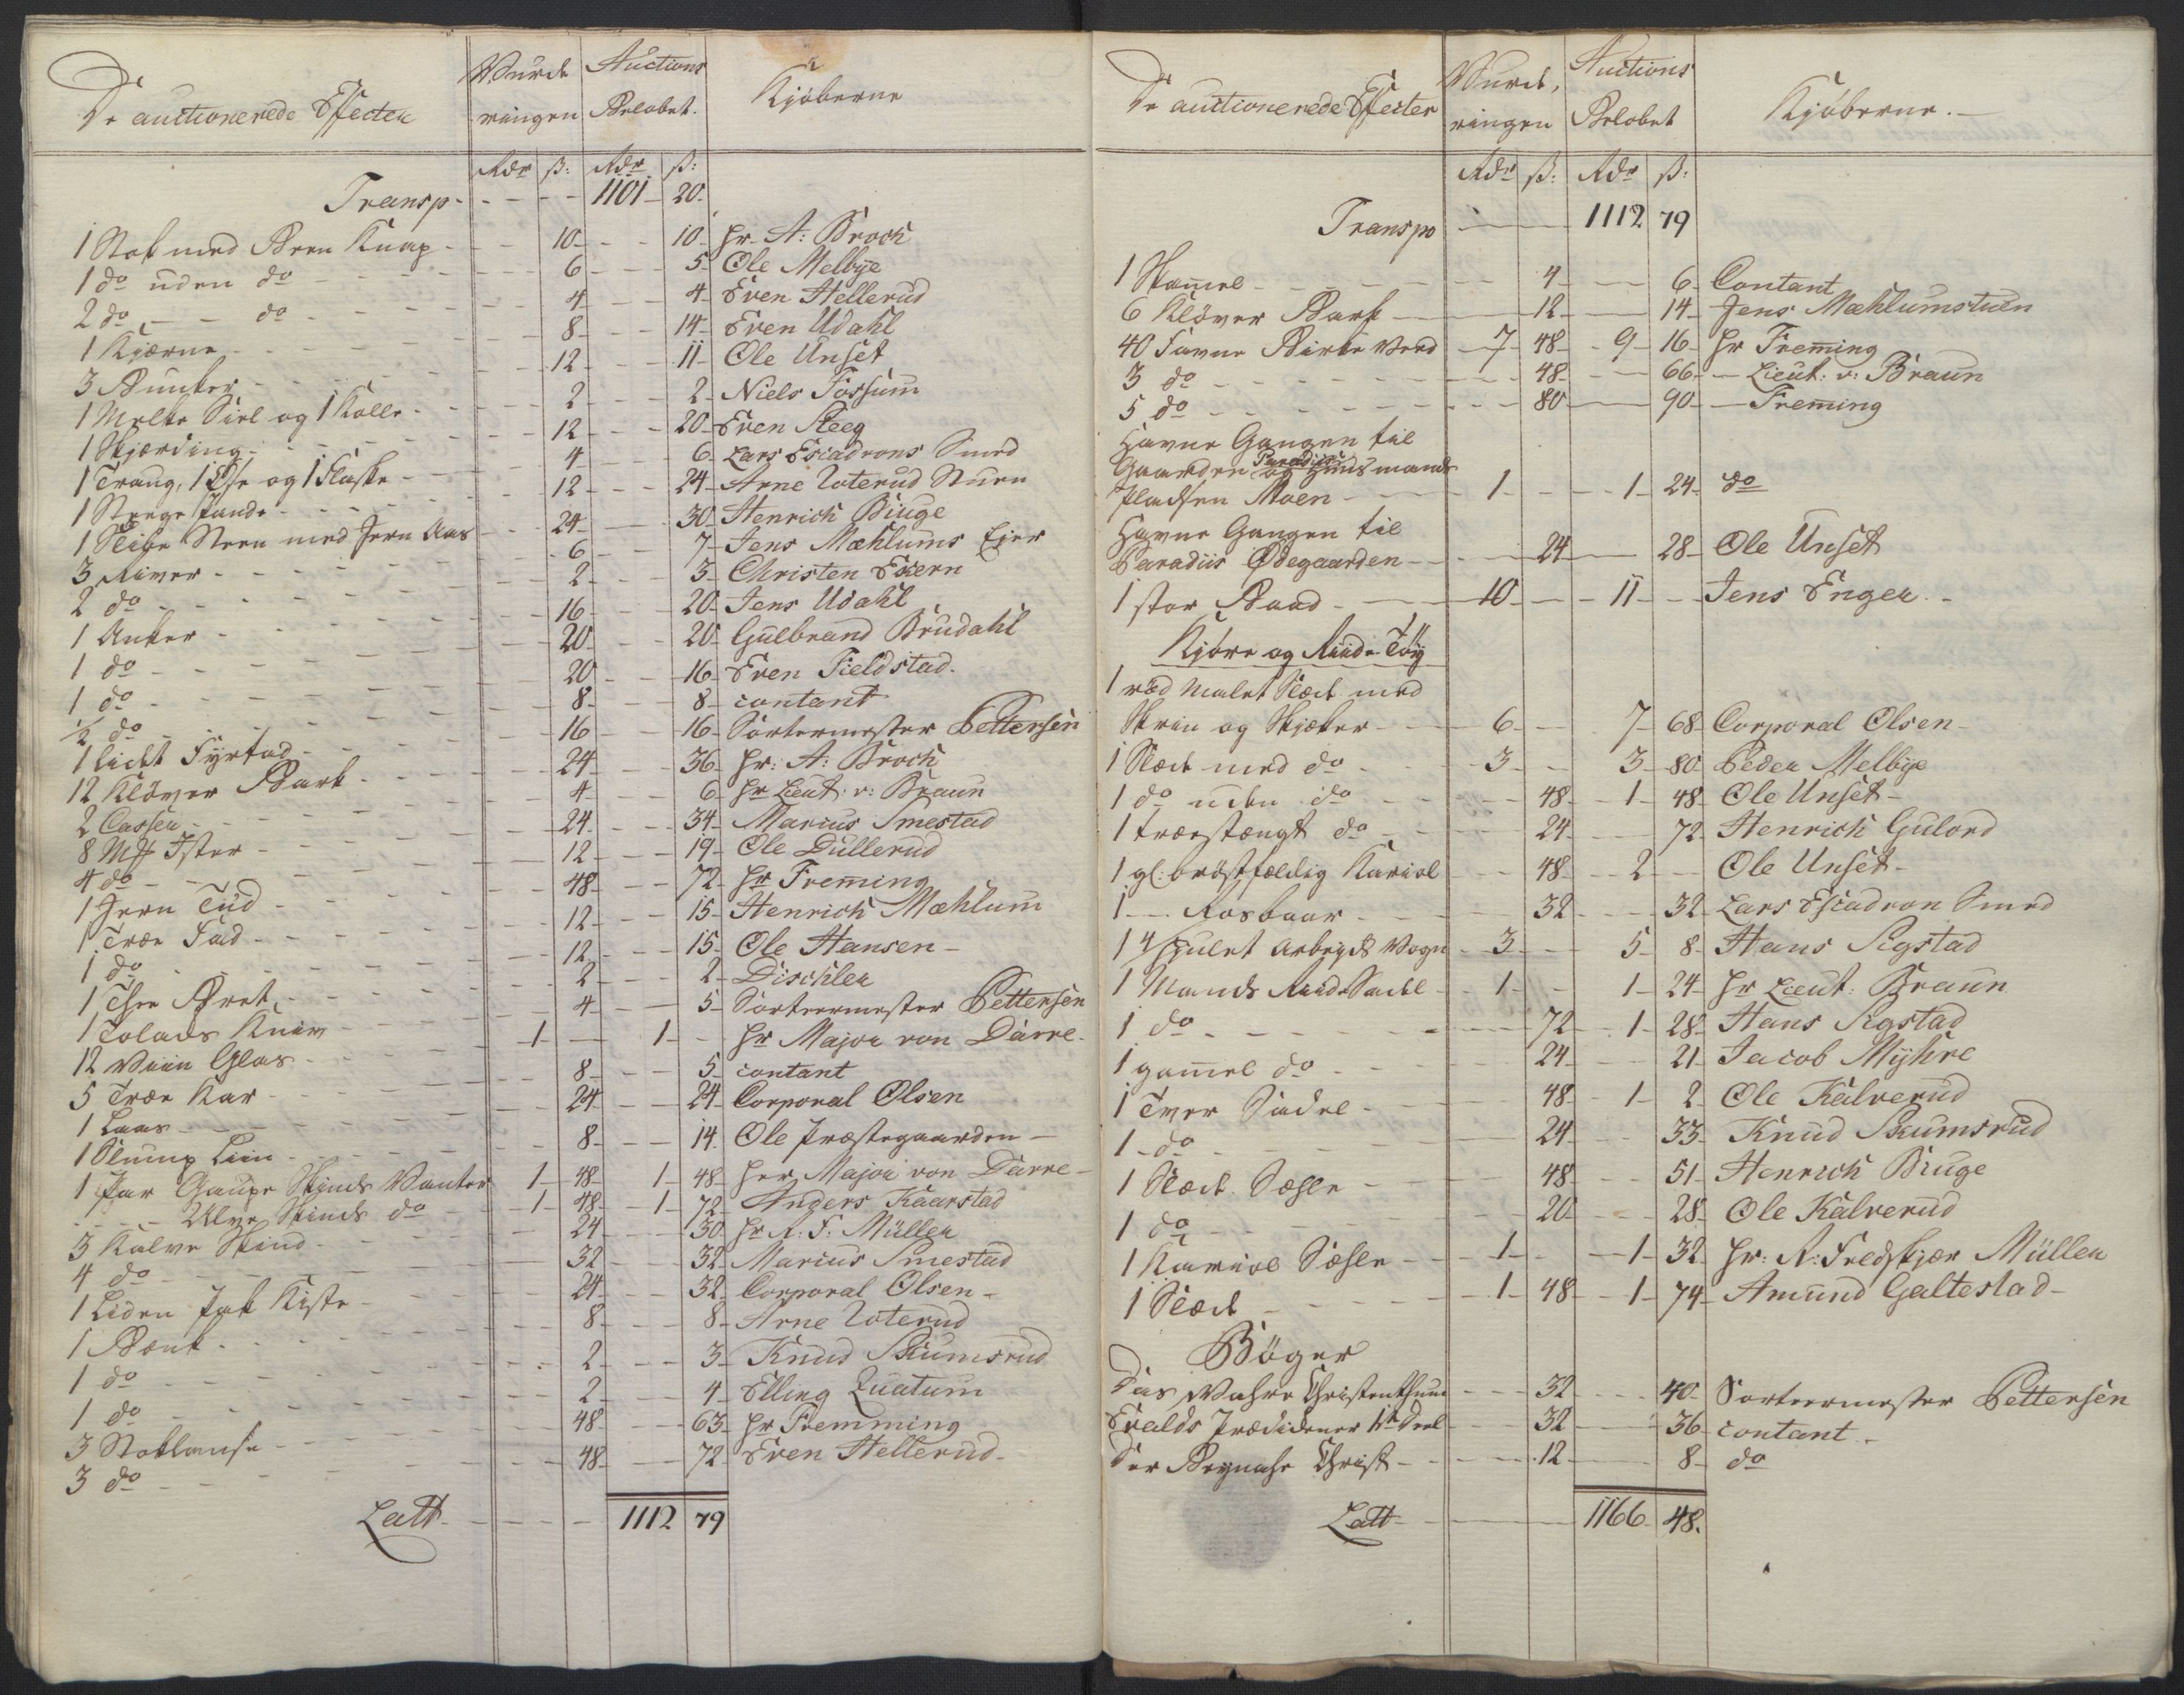 De auctionerede Effecter | Vurde- ringen | Auctions Beløbet. | Kjøberne
Rdr ß: Rdr ß:
Transp - 1101 - 20
1 Stok med Been Knap - 10 - 10 Hr. A: Brock
1 do uden do - 6 - 5 Ole Melbye
2 do - do - 4 - 4 Even Hellerud
1 Kjærne - 8 - 14 Even Udahl
3 Bunker - 12 - 11 Ole Unset
1 Melke Siel og 1 Kolle - 2 - 2 Niels Fossum
1 Skjærding - 12 - 20 Even Steeg
1 Traug, 1 Øse og 1 Flaske - 4 - 6 Lars Escadrons Smed
1 Steege Pande - 12 - 24 Arne Loterud Stuen
1 Sliibe Steen med Jern Aas - 24 - 30 Henrich Biuge
3 River - 6 - 7 Jens Mæhlums Eier
2 do - 2 - 3 Christen Ekern
1 Anker - 16 - 20 Jens Udahl
1 do - 20 - 20 Gulbrand Brudahl
1 do - 20 - 16 Even Fieldstad
½ do - 8 - 8 contant
1 lidet Fyrfad - 16 - 16 Sorteermester Pettersen
12 Kløver Bark - 24 - 36 Hr: A: Brock
2 Casser - 4 - 6 Hr Lieut: v: Braun
8 Mk Ister - 24 - 34 Marius Smestad
4 do - 12 - 19 Ole Dullerud
1 Jern Tud - 48 - 72 Hr Freming
1 Træe Fad - 12 - 15 Henrich Mæhlum
1 do - 12 - 15 Ole Hansen
1 Thee Bret - 2 - 2 Dischler
1 Tolads Kniv - 4 - 5 Sorteermester Pettersen
12 Viin Glas - 1 - 1 - Hr Major von Darre
5 Træe Kar - 8 - 5 contant
1 Laas - 24 - 24 Corporal Olsen
1 Slump Liin - 8 - 14 Ole Præstegaarden
1 Par Gaupe Skinds Vanter 1 - 48 - 1 - 48 Herr Major von Darre
- Ulve Skinds do - 1 - 48 - 1 - 72 Anders Kaarstad
3 Kalve Skind - 24 - 30 Hr R: F: Müller
4 do - 32 - 32 Marius Smestad
1 Liden Pak Kiste - 24 - 32 Corporal Olsen
1 Bænk - 8 - 8 Arne Loterud
1 do - 2 - 3 Knud Skiumsrud
1 do - 2 - 4 Elling Quatum
3 Stoklause - 48 - 63 Hr Fremming
3 do - 48 - 72 Even Hellerud
Latt - 1112 79
De auctionerede Effecter | Vurde, ringen | Auctions Beløbet | Kjøberne.
Rdr ß: Rdr ß:
Transpo - 1112 79
1 Skamel - 4 - 6 Contant
6 Kløver Bark - 12 - 14 Jens Mæhlumstuen
40 Favne Birke Veed - 7 - 48 - 9 - 16 Hr Freming
3 do - 48 - 66 - Lieut: v: Braun
5 do - 80 - 90 - Freming
Havne Gangen til
Gaarden Paradiis og Huusmands
Pladsen Moen - 1 - 1 - 24 do
Havne Gangen til
Paradiis Ødegaarden - 24 - 28 Ole Unset
1 stor Baad - 10 - 11 - Jens Enger
Kjøre og Riide-Tøy
1 rød malet Slæde med
Skrin og Skjæker - 6 - 7 68 Corporal Olsen
1 Slæde med do - 3 - 3 - 80 Peder Melbye
1 do uden do - 48 - 1 - 48 Ole Unset
1 træestænget do - 24 - 72 Henrich Gulord
1 gl: brøstfældig Kariol - 48 - 2 - Ole Unset
1 - Rosbaar - 32 - 32 Lars Escadron Smed
1 4 hjulet Arbeyds Vogn - 3 - 5 8 Hans Sigstad
1 Mands Riide Sadel - 1 - 1 - 24 Hr Lieut: Braun
1 do - 72 - 1 - 28 Hans Sigstad
1 gamel do - 24 - 21 Jacob Myhre
1 Tver Sadel - 48 - 1 - 2 Ole Kalverud
1 do - 24 - 33 Knud Skiumsrud
1 Slæde Sæhle - 48 - 51 Henrich Biuge
1 do - 20 - 28 Ole Kalverud
1 Kariol Sæhle - 1 - 1 - 32 Hr: R: Feldskjær Müller
1 Slæde - 1 - 48 - 1 - 74 Amund Galtestad
Bøger
Das Wahre Christenthum - 32 - 40 Sorteermester Pettersen
Evalds Prædikener 1ste Deel - 32 - 36 contant
Der Beynahe Christ - 12 - 8 do
Latt - 1166 - 48.